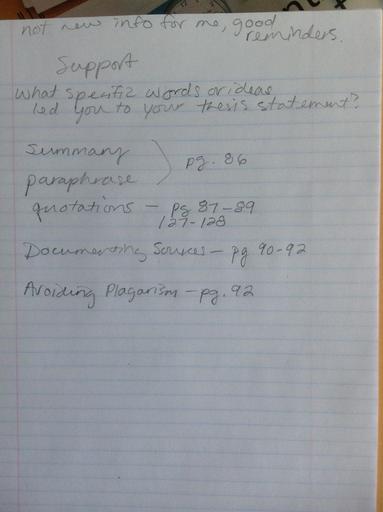 not new info for me, good
reminders.
Support
What specific words or ideas
led you to your thesis statement?
Summary
paraphrase
pg. 86
quotations - pg 87-89
127-128
Documenting Sources - pg 90-92
Avoiding Plagarism - pg. 92